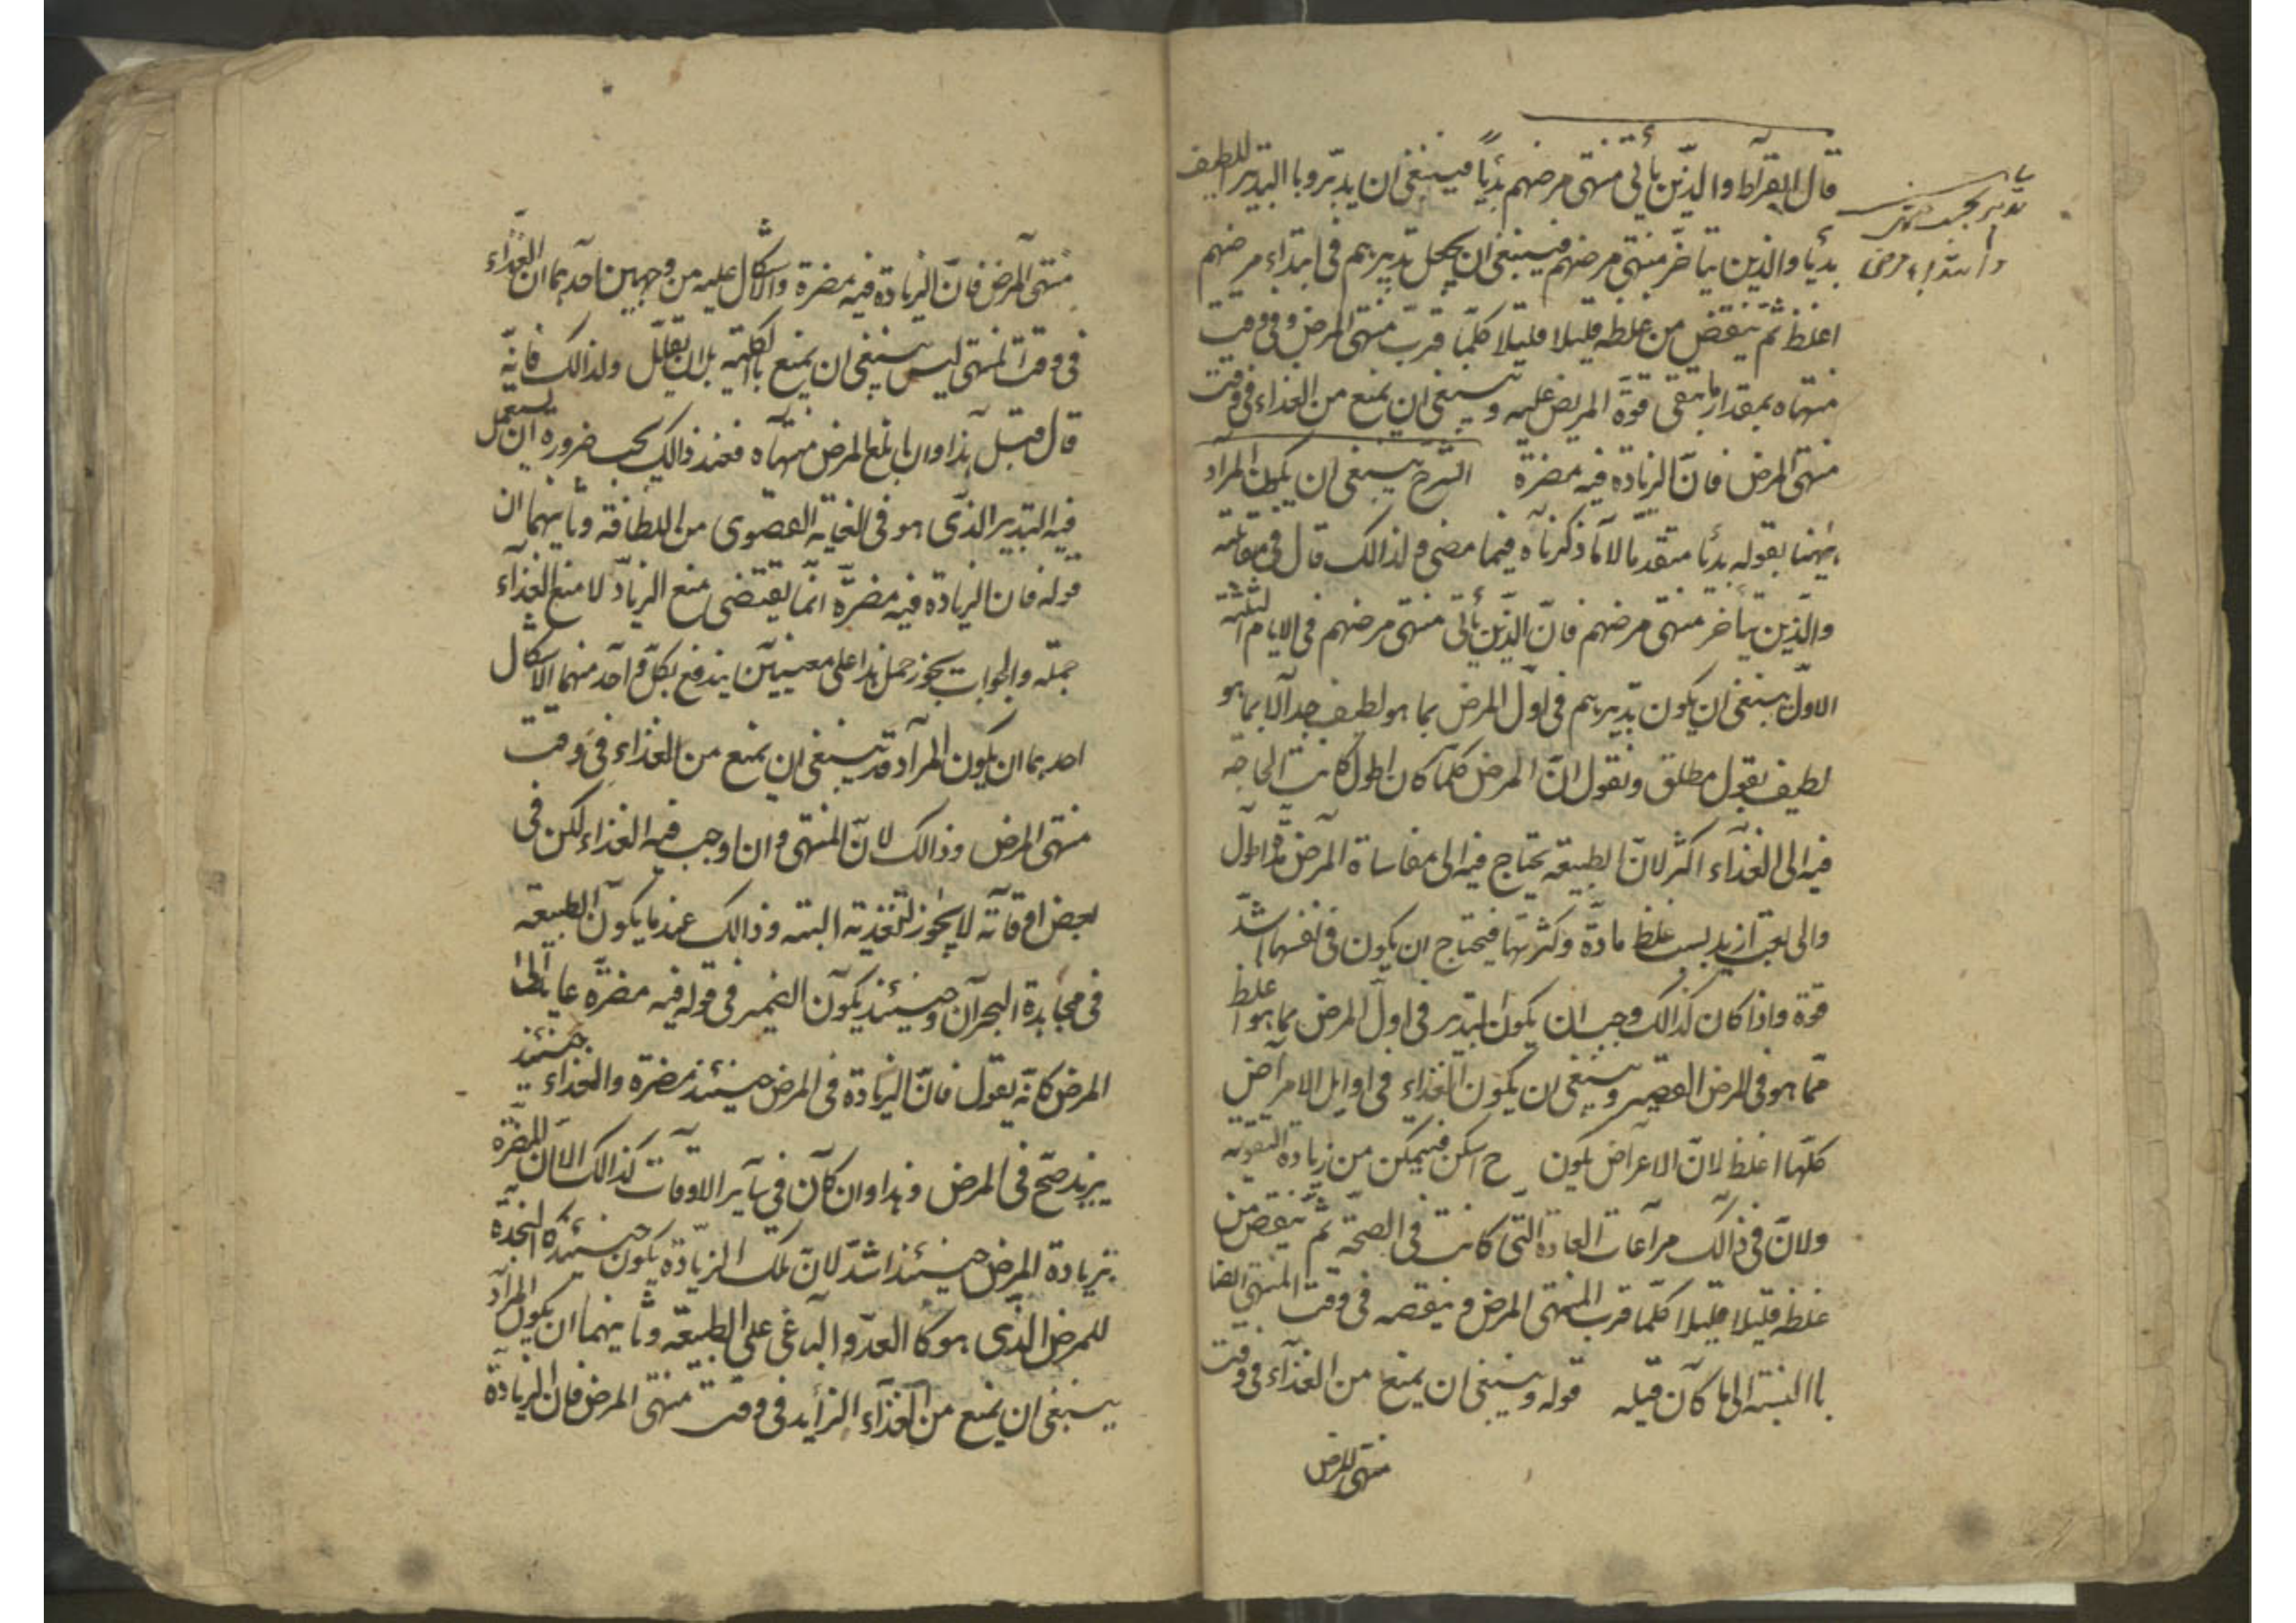 قال ابقراط والذين يأتي منتهى مرضهم بديًا فينبغي ان يدبروا باالتدبير اللطيف
بديًا والذين يتأخر منتهى مرضهم فينبغي ان يجعل تدبيرهم في ابتداء مرضهم
اغلظ ثم ينقص من غلظه قليلا قليلا كلما قرب منتهى المرض وفي وقت
منتهاه بمقدار ما تبقى قوة المريض عليه وينبغي ان يمنع من الغذاء في وقت
منتهى المرض فان الزيادة فيه مضرة الشرح ينبغي ان يكون المراد
ههنا بقوله بديًا متقدما لا ما ذكرناه فيما مضى ولذالك قال في مقابلته
والذين يتأخر منتهى مرضهم فان الذين يأتي منتهى مرضهم في الايام الثلثة
الاول ينبغي ان يكون تدبيرهم في اول المرض بما هو لطيف جدا لا بما هو
لطيف بقول مطلق ونقول ان المرض كلما كان اطول كانت الحاجة
فيه الى الغذاء اكثر لان الطبيعة يحتاج فيه الى مقاساة المرض مدة اطول
والى تعب ازيد بسبب غلظ مادة وكثرتها فيحتاج ان يكون في نفسها اشد
قوة واذا كان كذالك وجب ان يكون التدبير في اول المرض بما هو اغلظ
مما هو في المرض القصير وينبغي ان يكون الغذاء في اوايل الامراض
كلها اغلظ لان الاعراض يكون ح اسكن فيتمكن من زيادة التقوية
ولان في ذالك مراعات العادة التي كانت في الصحة ثم ينقص من
غلظه قليلا قليلا كلما قرب المنتهى المرض وينقصه في وقت المنتهى ايضا
باالنسبة الى ما كان قبله قوله وينبغي ان يمنع من الغذاء في وقت
منتهى المرض
منتهى المرض فان الزيادة فيه مضرة والاشكال عليه من وجهين احدهما ان الغذاء
في وقت المنتهى ليس ينبغي ان يمنع باالكلية بل ان يقلل ولذالك فانه
قال قبل هذا وان بلغ المرض منتهاه فعند ذالك يجب ضرورة ان يستعمل
فيه التدبير الذى هو في الغاية القصوى من اللطافة وثانيهما ان
قوله فان الزيادة فيه مضرة انما يقتضى منع الزياد لا منع الغذاء
جملة والجواب يجوز حمل هذا على معنيين يندفع بكل واحد منهما الاشكال
احدهما ان يكون المراد قد ينبغي ان يمنع من الغذاء في وقت
منتهى المرض وذالك لان المنتهى وان اوجب فيه الغذاء لكن في
بعض اوقاته لا يجوز التغذية البتة وذالك عند ما يكون الطبيعة
في مجاهدة البحران وحينئذ يكون الضمير في قوله فيه مضرة عايد الى
المرض كانه يقول فان الزيادة في المرض حينئذ مضرة والغذاء حينئذ
يزيد صح في المرض وهذا وان كان في ساير الاوقات كذالك الا ان المضرة
بزيادة المرض حينئذ اشد لان تلك الزيادة يكون حينئذ كاالنجدة
للمرض الذى هو كا العدو الباغي على الطبيعة وثانيهما ان يكون المراد
ينبغي ان يمنع من الغذاء الزايد في وقت منتهى المرض فان الزيادة